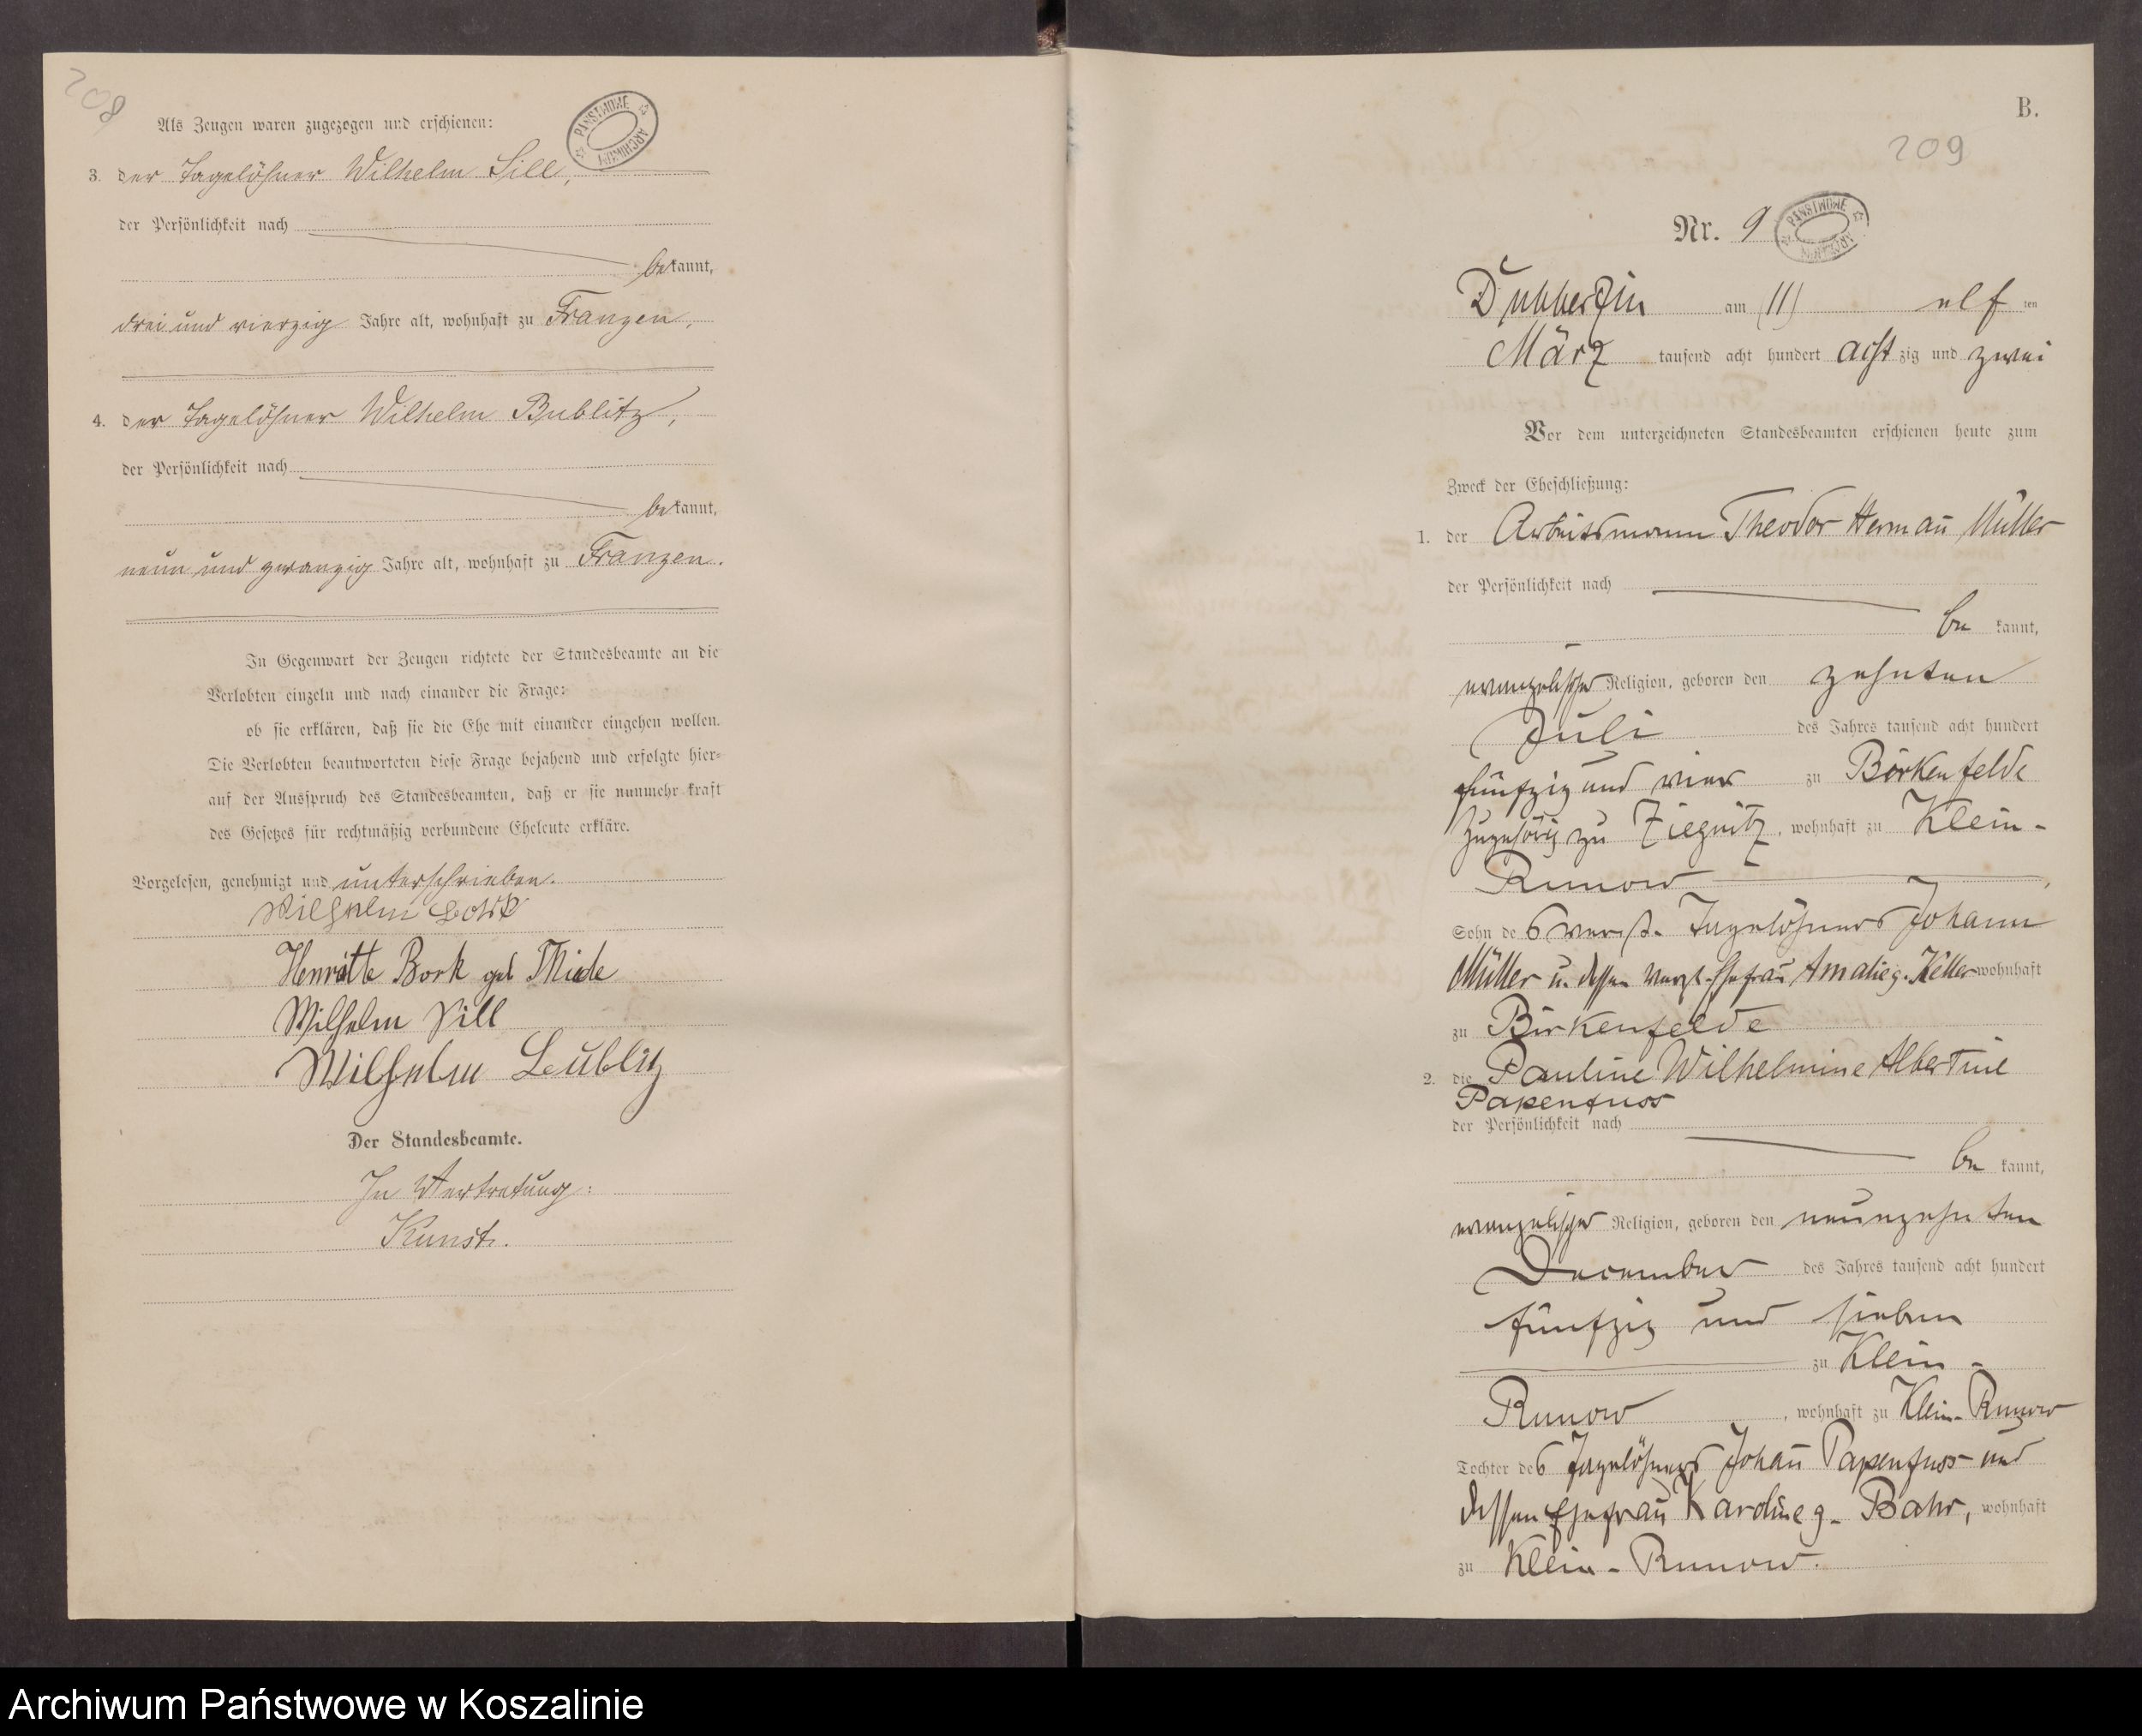 208
Als Zeugen waren zugezogen und erschienen:
PAŃSTWOWE ARCHIWUM
3. der Tagelöhner Wilhelm Sill,
der Persönlichkeit nach
bekannt,
drei und vierzig Jahre alt, wohnhaft zu Franzen,
4. der Tagelöhner Wilhelm Bublitz,
der Persönlichkeit nach
bekannt,
neun und zwanzig Jahre alt, wohnhaft zu Franzen.
In Gegenwart der Zeugen richtete der Standesbeamte an die
Verlobten einzeln und nach einander die Frage:
ob sie erklären, daß sie die Ehe mit einander eingehen wollen.
Die Verlobten beantworteten diese Frage bejahend und erfolgte hier-
auf der Ausspruch des Standesbeamten, daß er sie nunmehr kraft
des Gesetzes für rechtmäßig verbundene Eheleute erkläre.
Vorgelesen, genehmigt und unterschrieben.
Wilhelm Bork
Henriette Bork geb Thiede
Wilhelm Sill
Wilhelm Bublitz
Der Standesbeamte.
In Vertretung:
Kunst.
B.
209
Nr. 9
PAŃSTWOWE ARCHIWUM
Dubberzin am (11) elf ten
März tausend acht hundert acht zig und zwei
Vor dem unterzeichneten Standesbeamten erschienen heute zum
Zweck der Eheschließung:
1. der Arbeitsmann Theodor Herman̄ Müller
der Persönlichkeit nach
be kannt,
evangelischer Religion, geboren den zehnten
Juli des Jahres tausend acht hundert
fünfzig und vier zu Birkenfelde
zugehörig zu Ziegnitz, wohnhaft zu Klein-
Runow
Sohn des verst. Tagelöhners Johann
Müller u. dessen verst. Ehefrau Amalie g. Keller wohnhaft
zu Birkenfelde
2. die Pauline Wilhelmine Albertine
Papenfuss
der Persönlichkeit nach
be kannt,
evangelischer Religion, geboren den neunzehnten
December des Jahres tausend acht hundert
fünfzig und sieben
zu Klein-
Runow, wohnhaft zu Klein-Runow
Tochter des Tagelöhners Johan̄ Papenfuss und
dessen Ehefrau Karoline g. Bahr, wohnhaft
zu Klein-Runow.
Archiwum Państwowe w Koszalinie